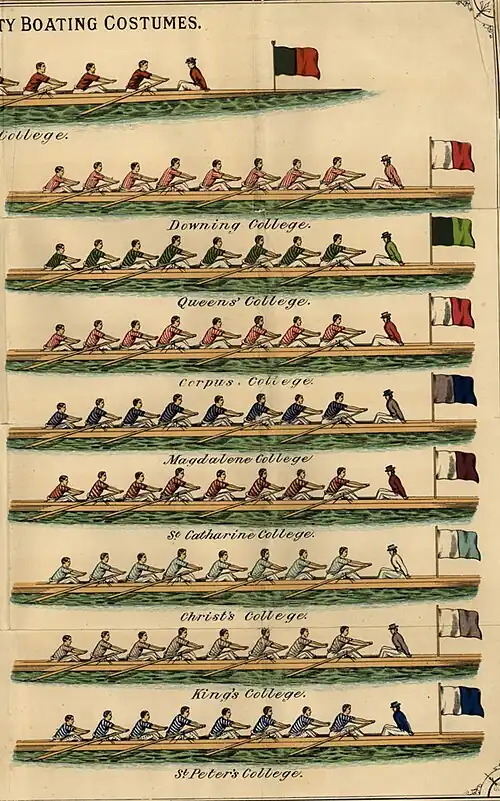 TY BOATING COSTUMES.
College.
Downing College.
Queens' College.
Corpus. College.
Magdalene College
St Catharine College.
Christ's College.
King's College.
St Peter's College.